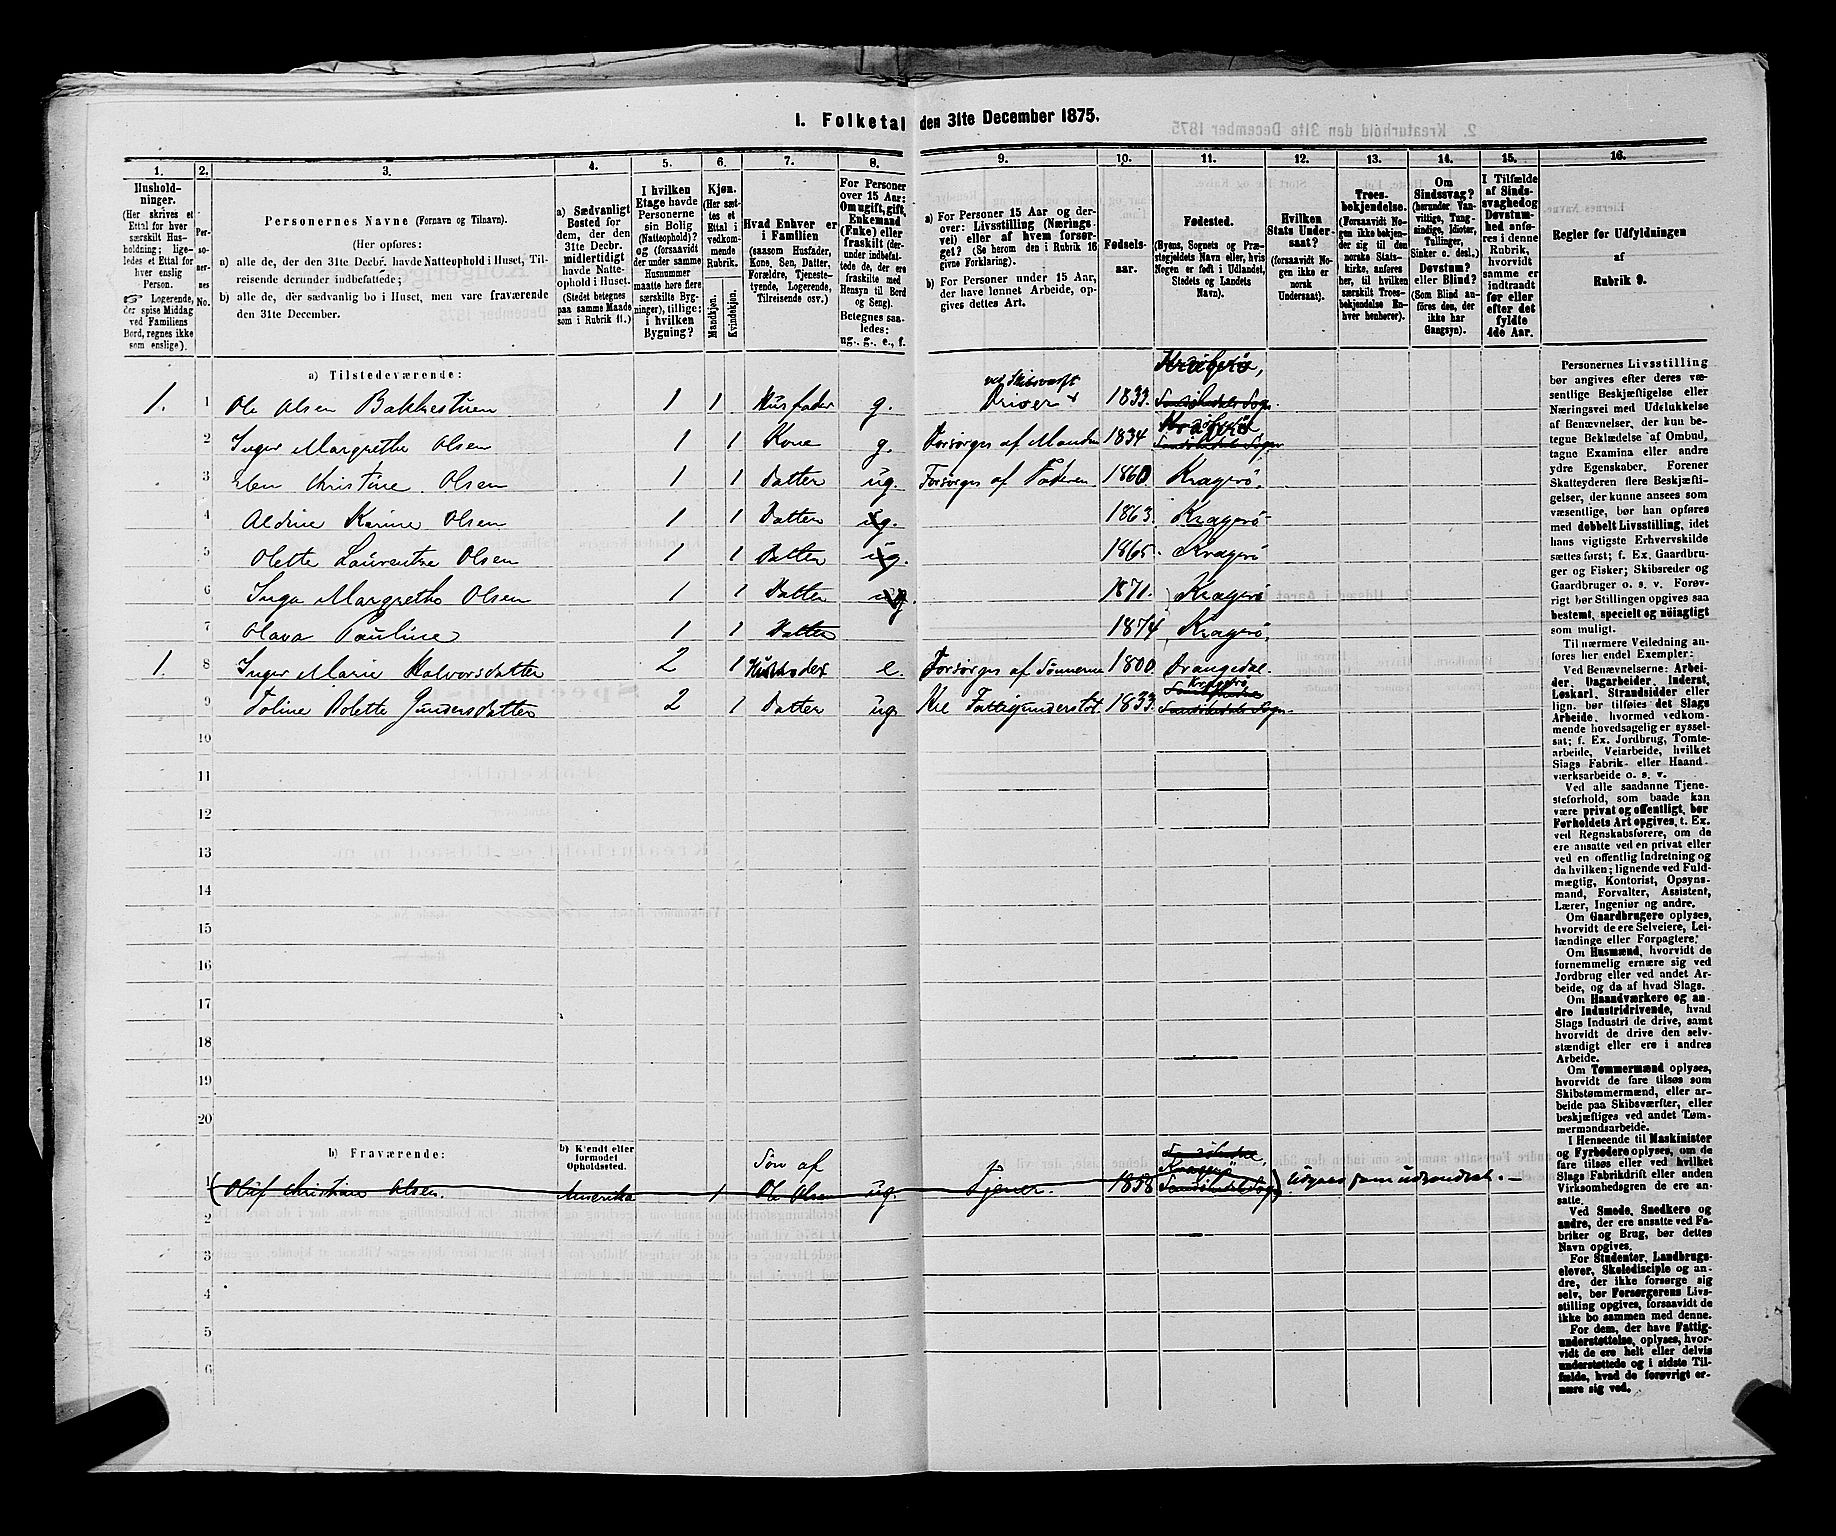 1. Folketal den 31te December 1875.
1.
Hushold-
ninger.
(Her skrives et
Ettal for hver
særskilt Hus-
holdning; lige-
ledes et Ettal for
hver enslig
Person.
☞ Logerende,
der spise Middag
ved Familiens
Bord, regnes ikke
som enslige).
2.
Per-
so-
ner-
nes
No.
3.
Personernes Navne (Fornavn og Tilnavn).
(Her opføres:
a) alle de, der den 31te Decbr. havde Natteophold i Huset, Til-
reisende derunder indbefattede;
b) alle de, der sædvanlig bo i Huset, men vare fraværende
den 31te December.
4.
a) Sædvanligt
Bosted for
dem, der den
31te Decbr.
midlertidigt
havde Natte-
ophold i Huset.
(Stedet betegnes
paa samme Maade
som i Rubrik 11.)
5.
I hvilken
Etage havde
Personerne
sin Bolig
(Natteophold)?
og (forsaavidt
der under samme
Husnummer
maatte høre flere
særskilte Byg-
ninger), tillige:
i hvilken
Bygning?
6.
Kjøn.
(Her sæt-
tes et
Ettal i
vedkom-
mende
Rubrik.
Mandkjøn.
Kvindekjøn.
7.
Hvad Enhver er
i Familien
(saasom Husfader,
Kone, Søn, Datter,
Forældre, Tjeneste-
tyende, Logerende,
Tilreisende osv.)
8.
For Personer
over 15 Aar:
Om ugift, gift,
Enkemand
(Enke) eller
fraskilt (der-
under indbefat-
tede de, der ere
fraskilte med
Hensyn til Bord
og Seng).
Betegnes saa-
ledes:
ug., g., e., f.
9.
a) For Personer 15 Aar og der-
over: Livsstilling (Nærings-
vei) eller af hvem forsør-
get? (Se herom den i Rubrik 16
givne Forklaring).
b) For Personer under 15 Aar,
der have lønnet Arbeide, op-
gives dettes Art.
10.
Fødsels-
aar.
11.
Fødested.
(Byens, Sognets og Præ-
stegjeldets Navn eller, hvis
Nogen er født i Udlandet,
Stedets og Landets
Navn).
12.
Hvilken
Stats Under-
saat?
(forsaavidt No-
gen ikke er
norsk
Undersaat).
13.
Troes-
bekjendelse.
(Forsaavidt No-
gen ikke bekjen-
der sig til den
norske Stats-
kirke, anføres
her, til hvilken
særskilt Troes-
bekjendelse En-
hver henhører).
14.
Om
Sindssvag?
(herunder Van-
vittige, Tung-
sindige, Idioter,
Tullinger,
Sinker o. desl.)
Døvstum?
eller Blind?
(Som Blind an-
føres den, der
ikke har
Gangsyn).
15.
I Tilfælde
af Sinds-
svaghed og
Døvstum-
hed anfø-
res i denne
Rubrik,
hvorvidt
samme er
indtraadt
før eller
efter det
fyldte
4de Aar.
16.
Regler for Udfyldningen
af
Rubrik 9.
a) Tilstedeværende:
1. 1 Ole Olsen Bakkestuen 1 1 Husfader g. ved Skibsværft 1833. Kragerø, Sandøkedals Sogn.
2 Inger Margrethe Olsen 1 1 Kone g. Forsørges af Manden 1834 Kragerø Sandøkedals Sogn
3 Elen Kristine Olsen 1 1 Datter ug. Forsørges af Faderen 1860 Kragerø.
4 Aldine Karine Olsen 1 1 Datter ug. 1863. Kragerø
5 Olette Laurentze Olsen 1 1 Datter ug. 1865. Kragerø
6 Inga Margrethe Olsen 1 1 Datter ug. 1871. Kragerø
7 Olava Pauline 1 1 Datter 1874 Kragerø,
1. 8 Inger Marie Halvorsdatter 2 1 Husmoder e. Forsørges af Sønnerne 1800. Drangedal.
9 Toline Dolette Gundersdatter 2 1 Datter ug. Fattigunderstøt. 1833. Kragerø Sandøkedals Sogn.
10
11
12
13
14
15
16
17
18
19
20
b) Fraværende:
b) Kjendt eller
formodet
Opholdssted.
1 (Oluf Christian Olsen. Amerika 1 Søn af Ole Olsen ug. 1858 Sandøkedal, Kragerø Sandøkedals Sogn)
2
3
4
5
6
Personernes Livsstilling
bør angives efter deres væ-
sentlige Beskjæftigelse eller
Næringsvei med Udelukkelse
af Benævnelser, der kun be-
tegne Beklædelse af Ombud,
tagne Examina eller andre
ydre Egenskaber. Forener
Skatteyderen flere Beskjæfti-
gelser, der kunne ansees som
væsentlige, bør han opføres
med dobbelt Livsstilling, idet
hans vigtigste Erhvervskilde
sættes først; f. Ex. Gaardbru-
ger og Fisker; Skibsreder og
Gaardbruger o. s. v. Forøv-
rigt bør Stillingen opgives saa
bestemt, specielt og nøiagtigt
som muligt.
Til nærmere Veiledning an-
føres her endel Exempler:
Ved Benævnelserne: Arbei-
der, Dagarbeider, Inderst,
Løskarl, Strandsidder eller
lign. bør tilføies det Slags
Arbeide, hvormed vedkom-
mende hovedsagelig er syssel-
sat; f. Ex. Jordbrug, Tomte-
arbeide, Veiarbeide, hvilket
Slags Fabrik- eller Haand-
værksarbeide o. s. v.
Ved alle saadanne Tjene-
steforhold, som baade kan
være privat og offentligt, bør
Forholdets Art opgives, t. Ex.
ved Regnskabsførere, om de
ere ansatte ved en privat eller
ved en offentlig Indretning og
da hvilken; lignende ved Fuld-
mægtig, Kontorist, Opsyns-
mand, Forvalter, Assistent,
Lærer, Ingeniør og andre.
Om Gaardbrugere oplyses,
hvorvidt de ere Selveiere, Lei-
lændinge eller Forpagtere.
Om Husmænd, hvorvidt de
fornemmelig ernære sig ved
Jordbrug eller ved andet Ar-
beide, og da af hvad Slags.
Om Haandværkere og an-
dre Industridrivende, hvad
Slags Industri de drive, samt
hvorvidt de drive den selv-
stændigt eller ere i andres
Arbeide.
Om Tømmermænd oplyses,
hvorvidt de fare tilsøs som
Skibstømmermænd, eller ar-
beide paa Skibsværfter, eller
beskjæftiges ved andet Tøm-
mermandsarbeide.
I Henseende til Maskinister
og Fyrbødere oplyses, om de
fare tilsøs eller ved hvilket
Slags Fabrikdrift eller anden
Virksomhedsgren de ere an-
satte.
Ved Smede, Snedkere og
andre, der ere ansatte ved Fa-
briker og Brug, bør dettes
Navn opgives.
For Studenter, Landbrugs-
elever, Skoledisciple og an-
dre, der ikke forsørge sig
selv, bør Forsørgerens Livs-
stilling opgives, forsaavidt de
ikke bo sammen med denne.
For dem, der have Fattig-
understøttelse, oplyses, hvor-
vidt de ere helt eller delvis
understøttede og i sidste Til-
fælde, hvad de forøvrigt er-
nære sig ved.